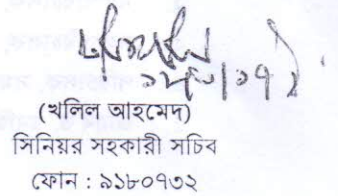 (খলিল আহমেদ)
সিনিয়র সহকারী সচিব
ফোন : ৯১৮০৭৩২